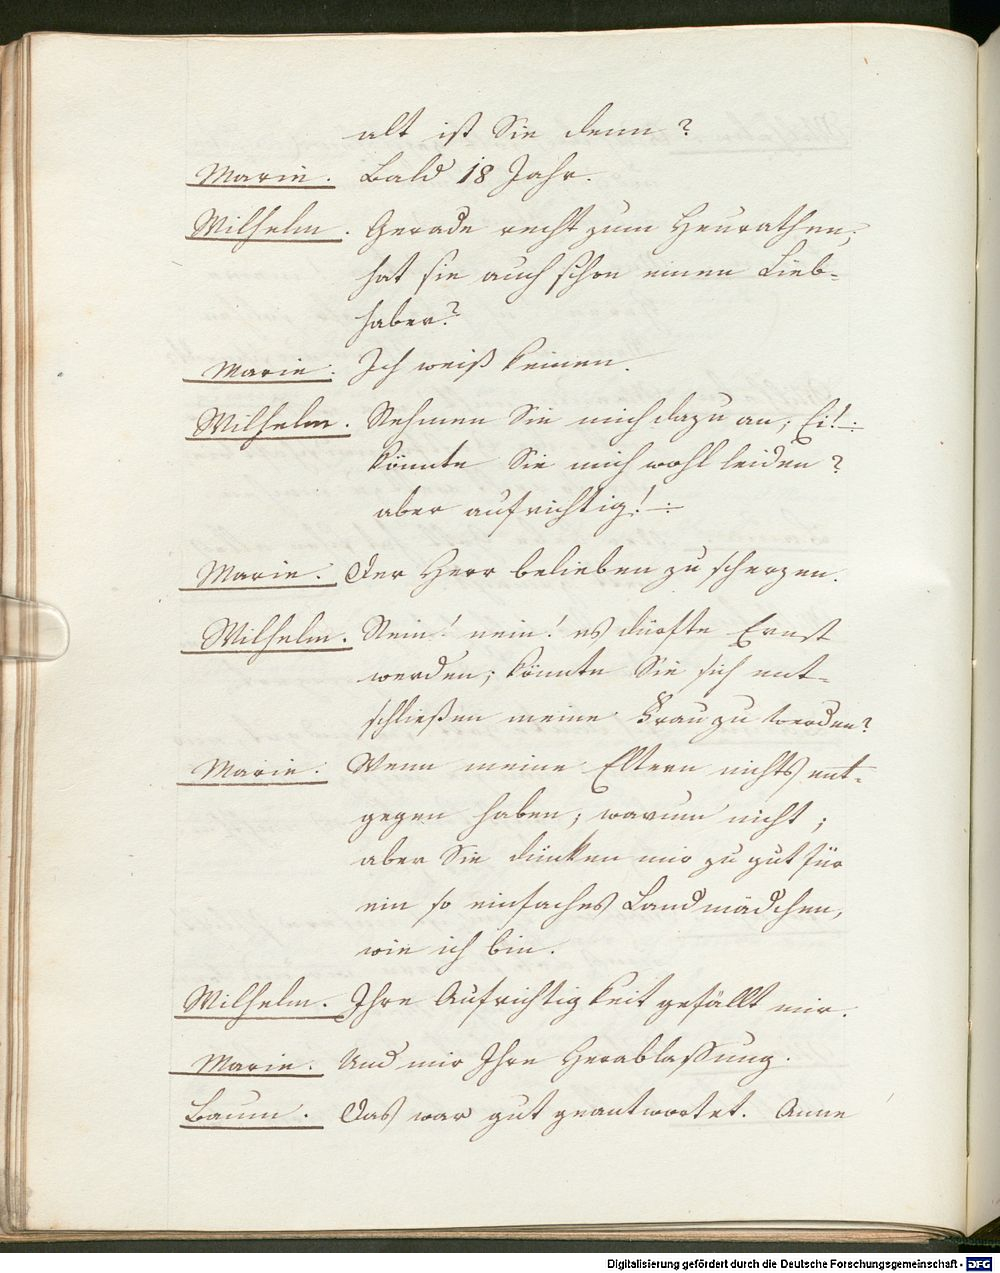 alt ist Sie denn?
Marie. Bald 18 Jahr.
Wilhelm. Gerade recht zum Heurathen;
hat sie auch schon einen Lieb-
haber?
Marie. Ich weiß keinen.
Wilhelm. Nehmen Sie mich dazu an, Ei! :
könnte Sie mich wohl leiden?
aber aufrichtig! :
Marie. Der Herr belieben zu scherzen.
Wilhelm. Nein! nein! es dürfte Ernst
werden; könnte Sie sich ent-
schließen meine Frau zu werden?
Marie. Wenn meine Eltern nichts ent-
gegen haben, warum nicht;
aber Sie dünken mir zu gut für
ein so einfaches Landmädchen,
wie ich bin.
Wilhelm. Ihre Aufrichtigkeit gefällt mir.
Marie. Und mir Ihre Herablassung.
Baum. Das war gut geantwortet. Anne
Digitalisierung gefördert durch die Deutsche Forschungsgemeinschaft - DFG